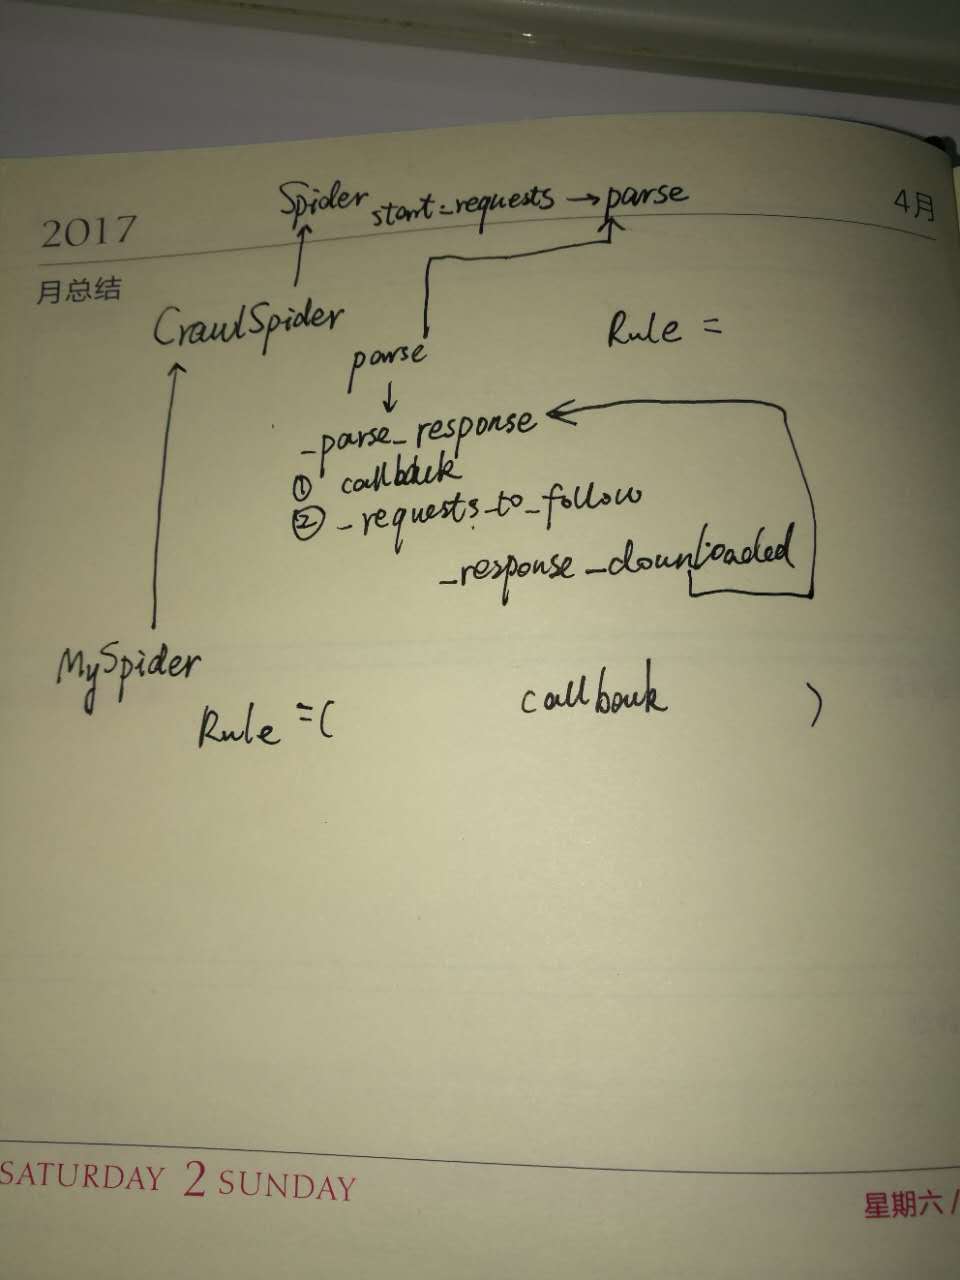 Spider start_requests → parse
2017
4月
月总结
CrawlSpider
Rule =
parse
_parse_response
① callback
② _requests_to_follow
_response_downloaded
MySpider
Rule =( callback )
SATURDAY 2 SUNDAY
星期六 /